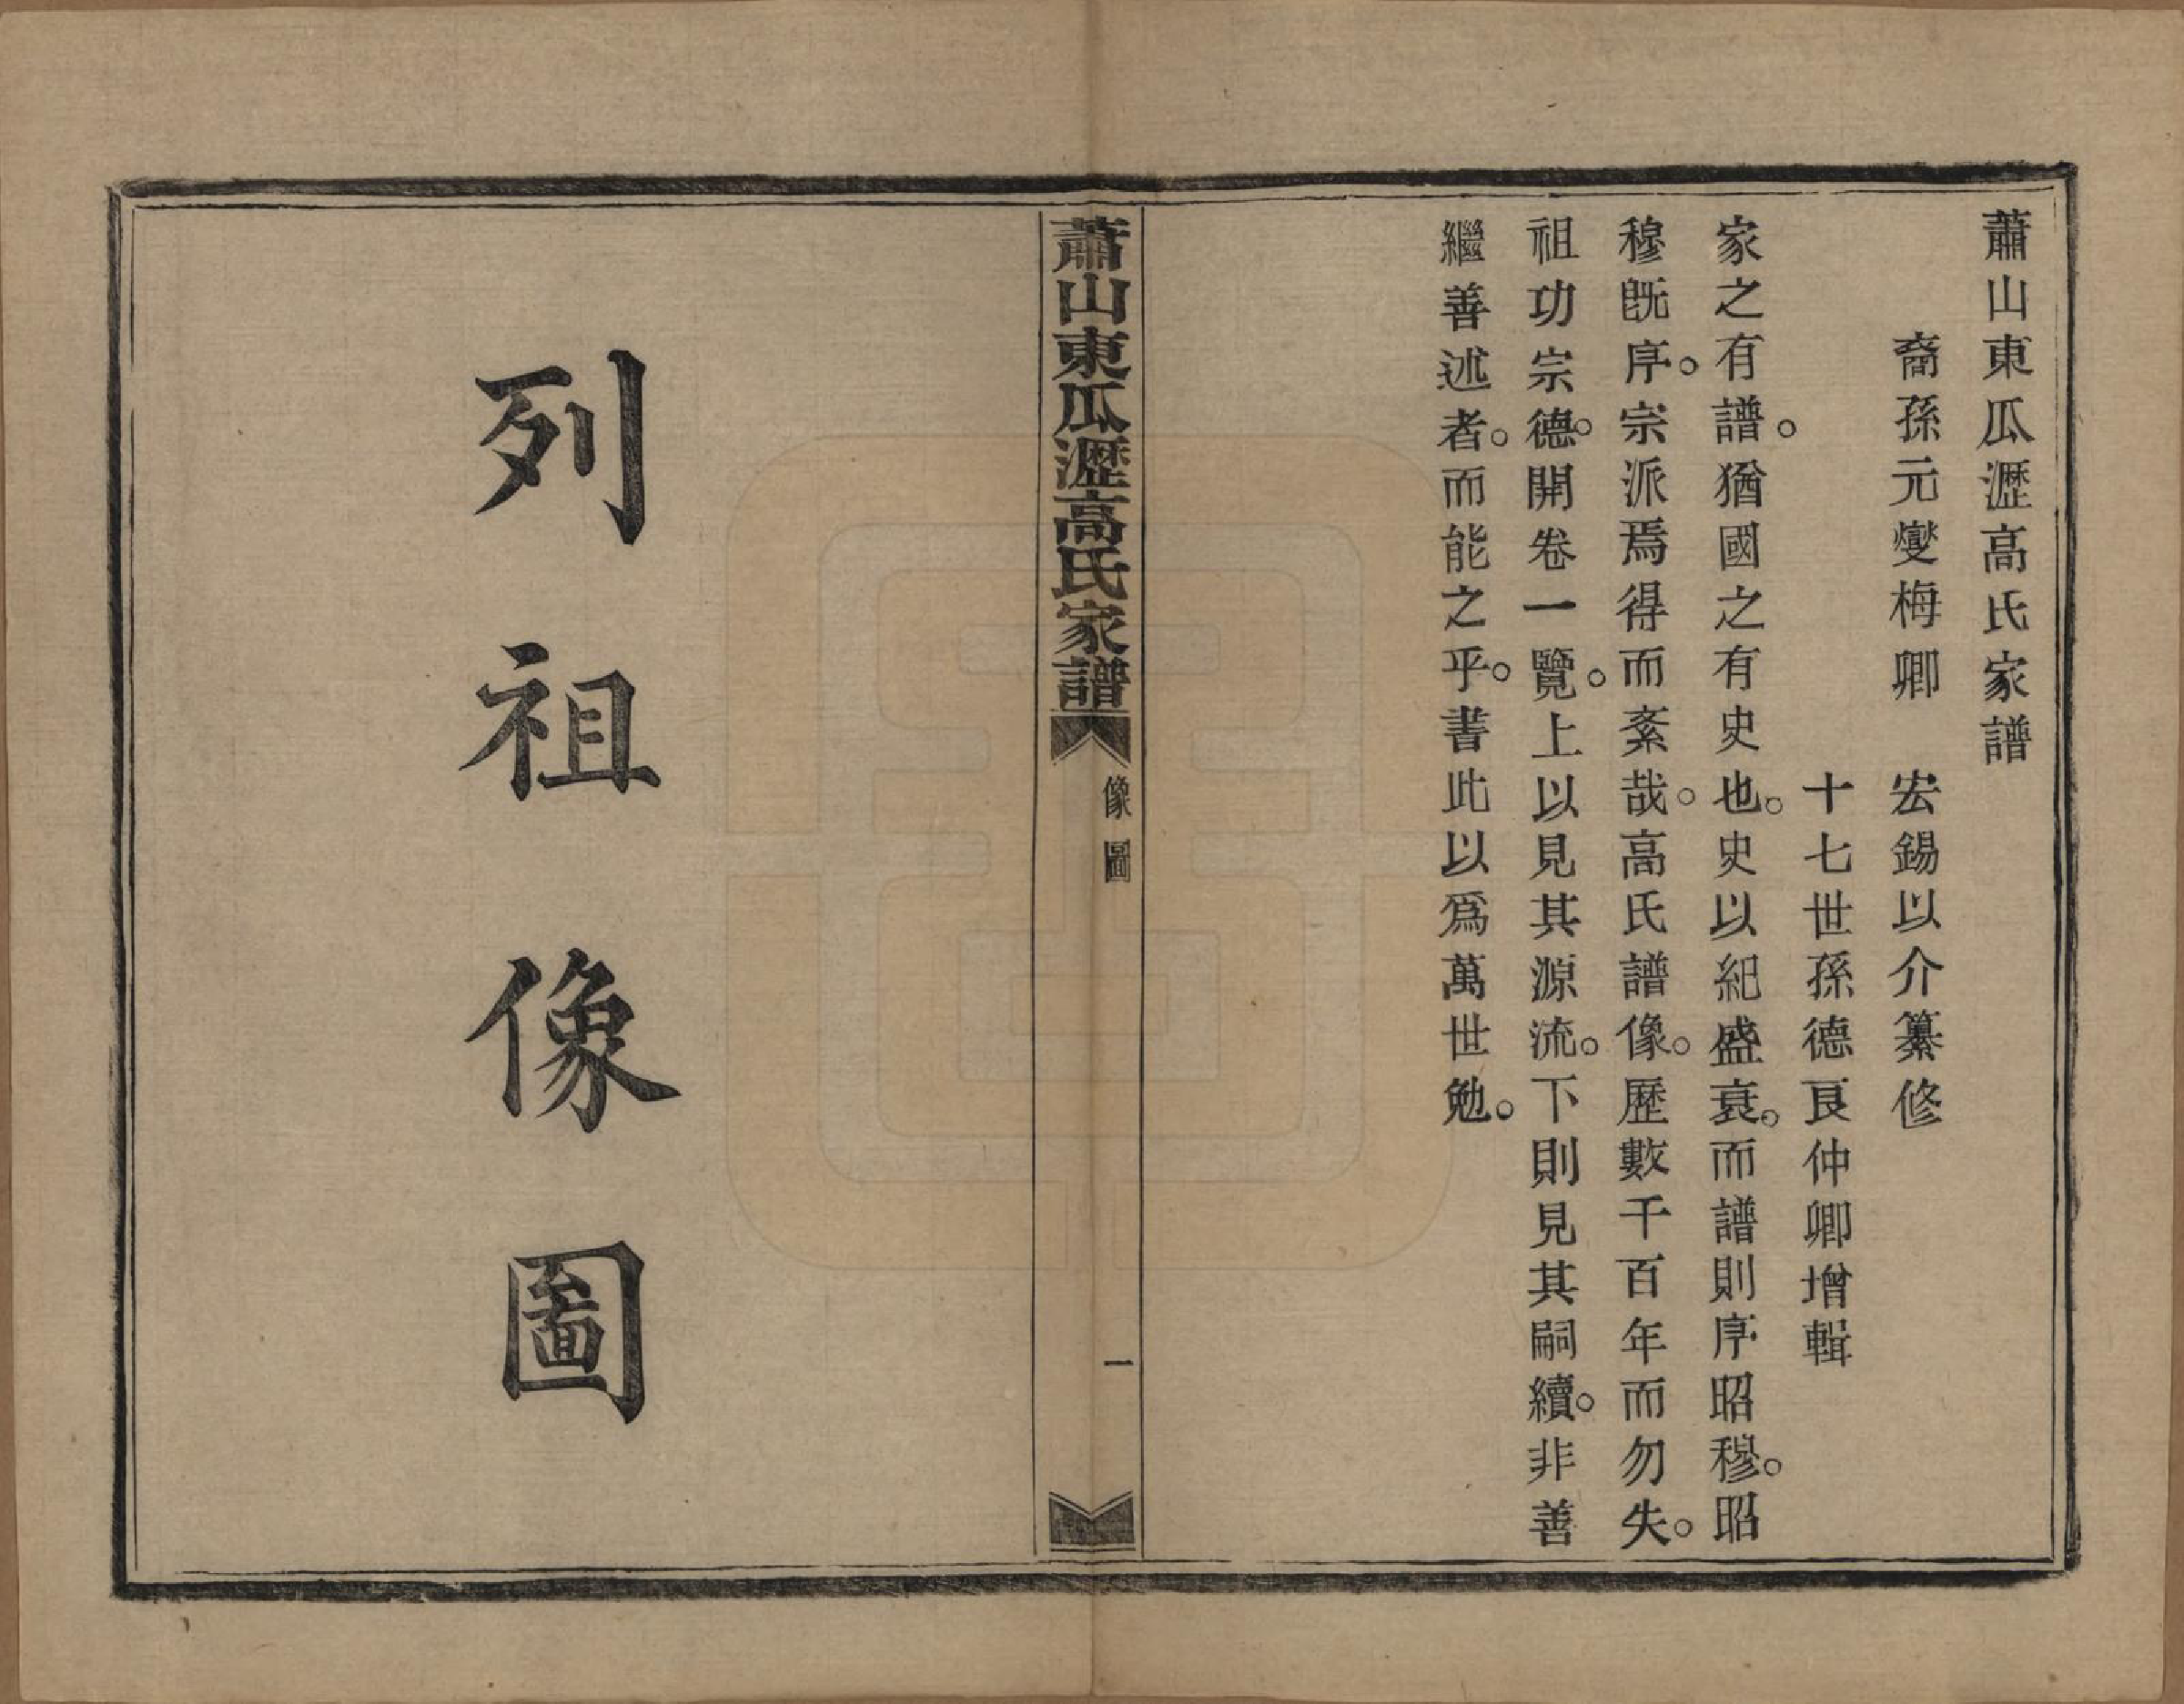 蕭山東瓜瀝高氏家譜
裔孫元燮梅卿　宏錫以介纂修
十七世孫德良仲卿增輯
家之有譜。猶國之有史也。史以紀盛衰。而譜則序昭穆。昭
穆旣序。宗派焉得而紊哉。高氏譜像。歷數千百年而勿失。
祖功宗德。開卷一覽。上以見其源流。下則見其嗣續。非善
繼善述者。而能之乎。書此以爲萬世勉。
蕭山東瓜瀝高氏家譜
像圖
一
列祖像圖